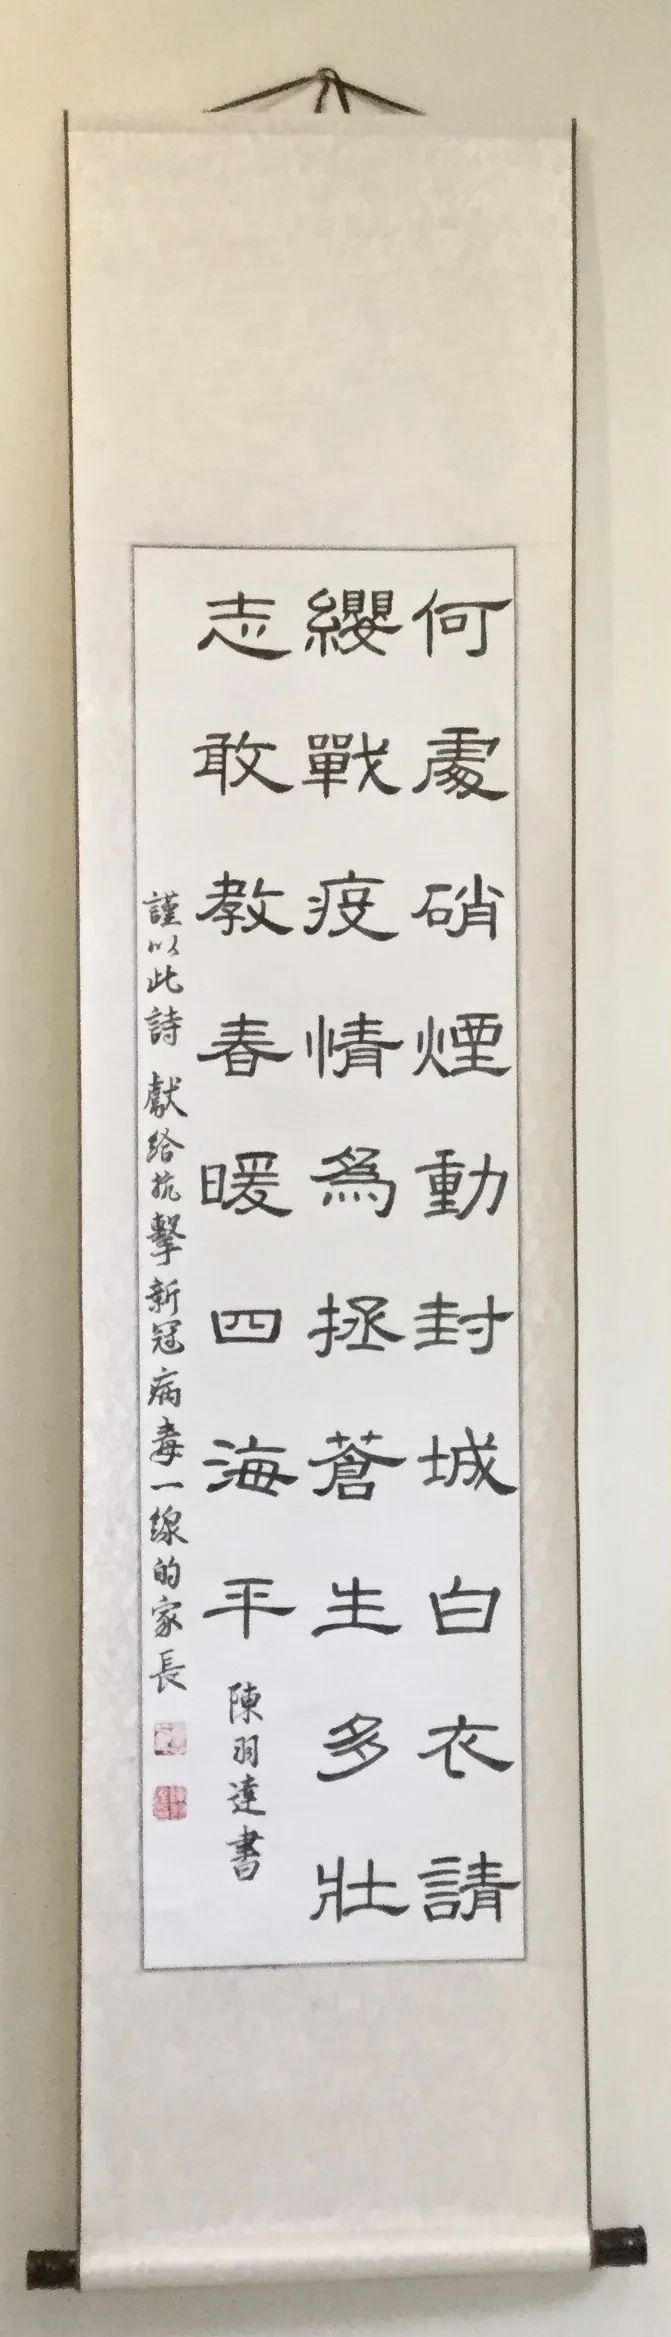 何處硝煙動封城白衣請
纓戰疫情為拯蒼生多壯
志敢教春暖四海平
陳羽達書
謹以此詩 獻給抗擊新冠病毒一線的家長